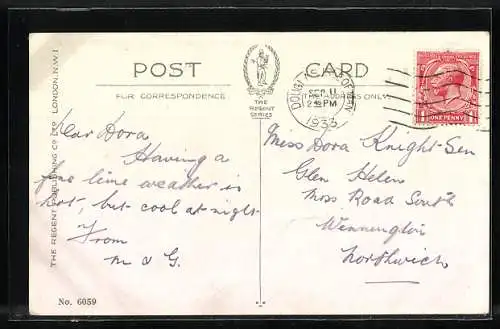 POST CARD
FOR CORRESPONDENCE
THE
REGENT
SERIES
DOUGLAS ISLE OF MAN
SEP 11
2 PM
1933
ONE PENNY
Dear Dora
Having a
fine time weather is
hot, but cool at night
From
M & G.
Miss Dora Knight-Sen
Glen Helen
Moss Road South
Wennington
Northwich
THE REGENT PUBLISHING CO LTD LONDON. N.W.1
No. 6059